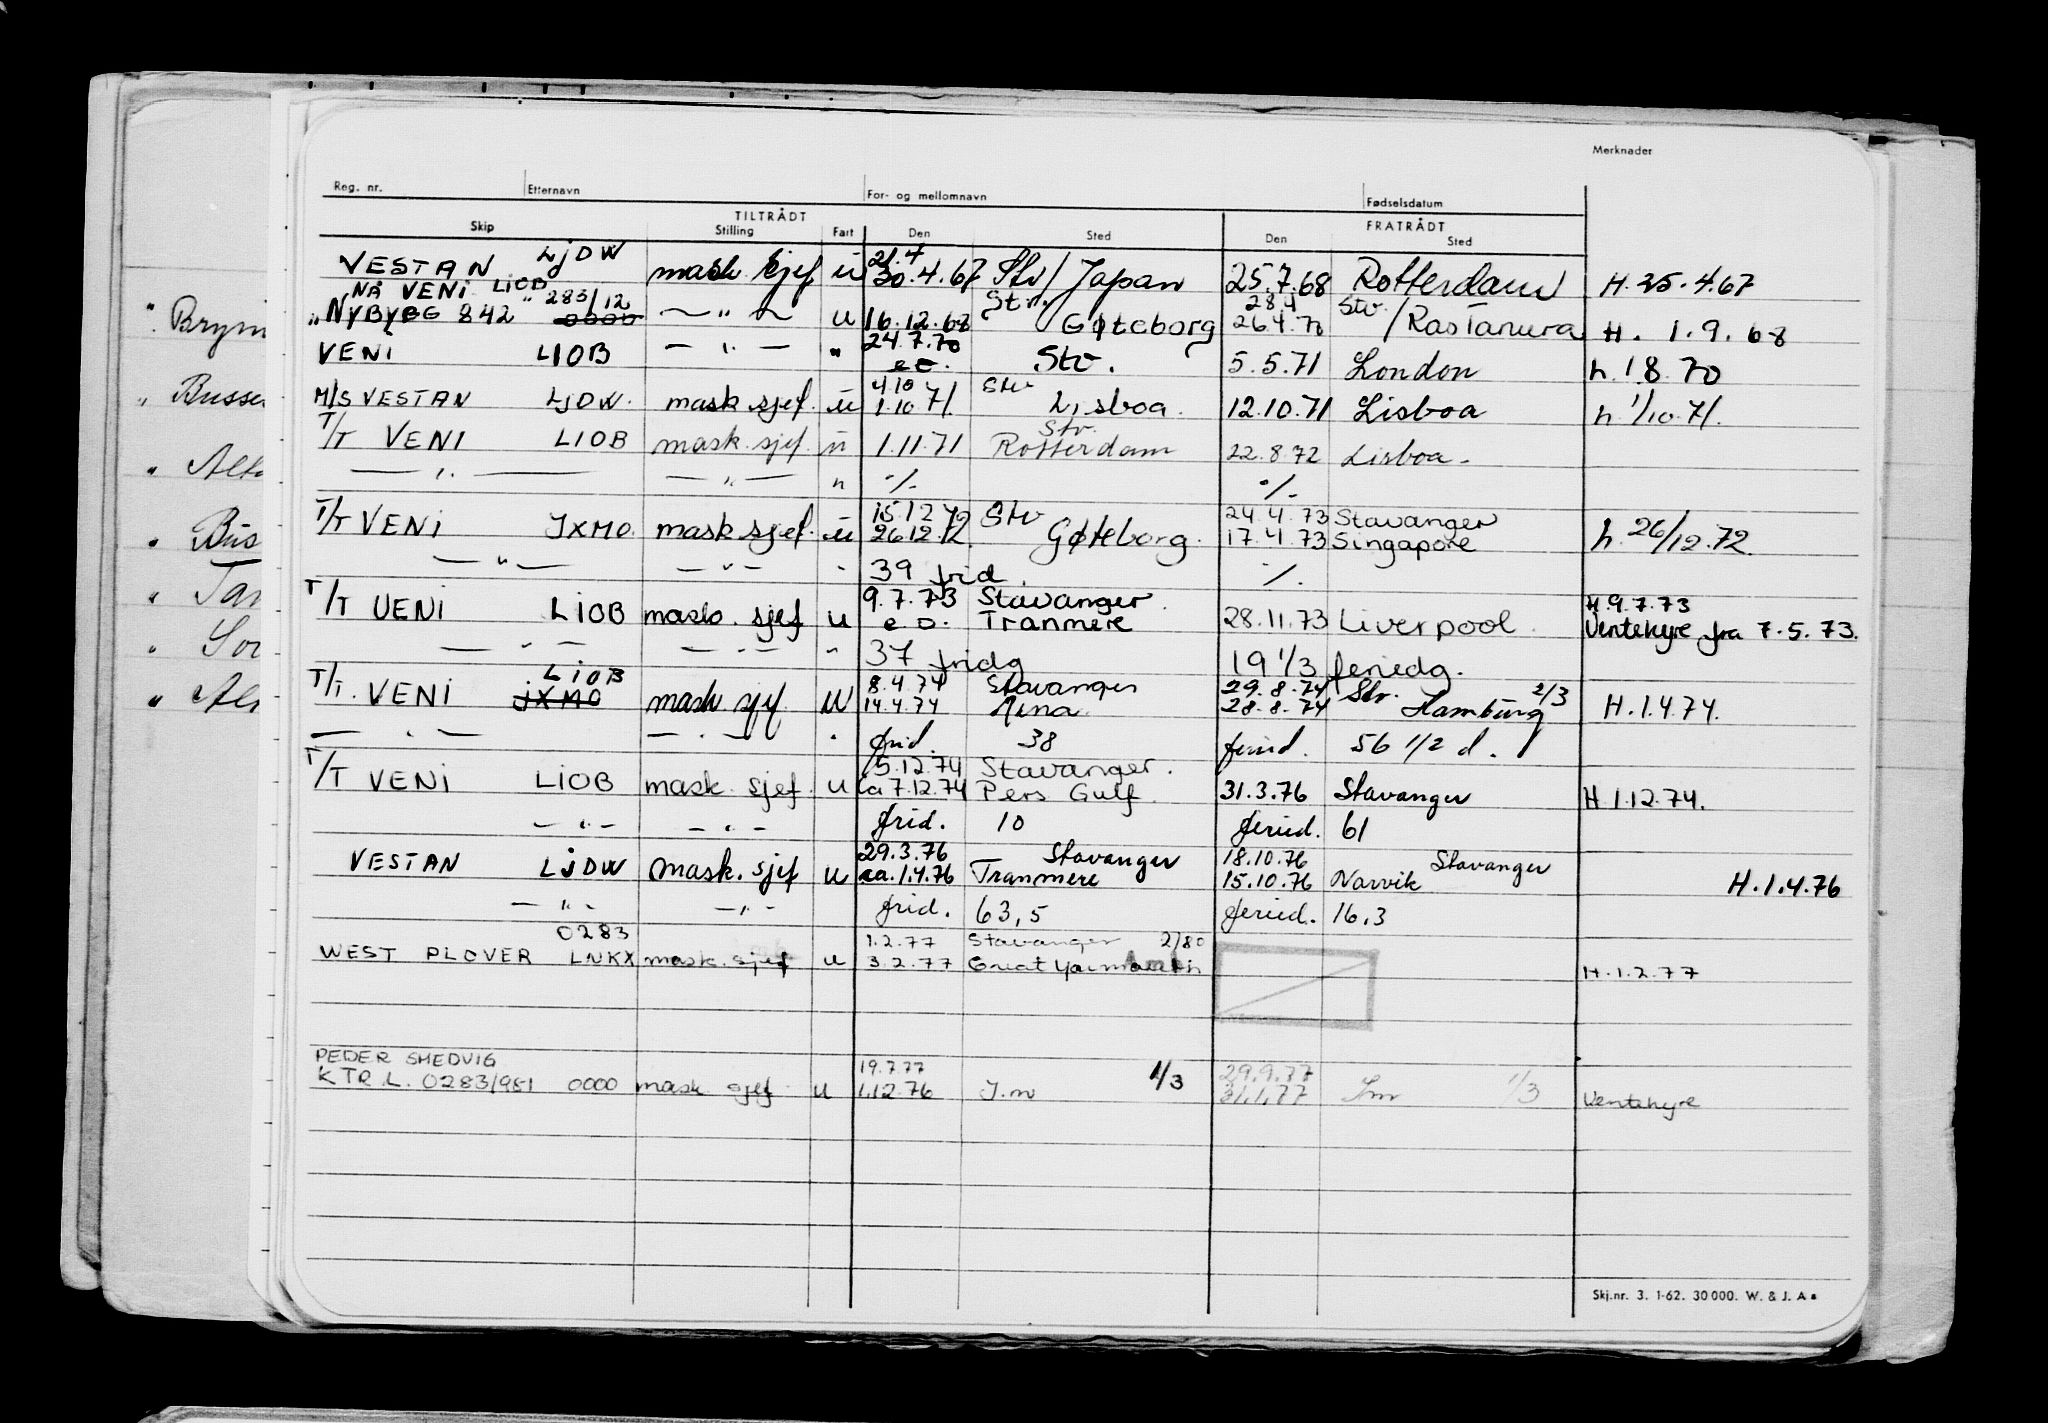 Merknader
Reg. nr. Etternavn For- og mellomnavn Fødselsdatum
TILTRÅDT FRATRÅDT
Skip Stilling Fart Den Sted Den Sted
21.4
VESTAN LJDW mask sjef u 30.4.67 Stv/Japan 25.7.68 Rotterdam H. 25.4.67
NÅ VENI LIOB
" 283/12 Stv. 28.4 Stv
"NYBYGG 842 0000 — " — u 16.12.68 Gøteborg 26.4.70 /RasTanura H. 1.9.68
24.7.70
VENI LIOB — " — " e o. Stv. 5.5.71 London h. 1.8.70
4.10 Stv
M/S VESTAN LJDW. mask sjef. u 1.10.71. Lisboa. 12.10.71 Lisboa h. 1/10.71.
Stv.
T/T VENI LIOB mask. sjef. u 1.11.71 Rotterdam 22.8.72 Lisboa.
— " — — " — " ./. ./.
15.12.72 Stv 24.4.73 Stavanger
T/T VENI JXMO. mask sjef. u 26.12.72. Gøteborg. 17.4.73 Singapore h. 26/12.72.
— " — — " — " 39 frid. ./.
9.7.73 Stavanger. H.9.7.73
T/T VENI LIOB mask. sjef u e o. Tranmere 28.11.73 Liverpool. Ventehyre fra 7.5.73.
— " — — " — " 37 fridg 19 1/3 feriedg.
LIOB 8.4.74 Stavanger 29.8.74 Stv. 2/3
T/T. VENI JXMO mask sjef. u 14.4.74 Mena 28.8.74 Hamburg H.1.4.74.
— " — — " — " frid. 38 feried. 56 1/2 d.
5.12.74 Stavanger.
T/T VENI LIOB mask. sjef. u ca 7.12.74 Pers Gulf. 31.3.76 Stavanger H.1.12.74.
— " — — " — frid. 10 feried. 61
29.3.76 Stavanger 18.10.76 Stavanger
VESTAN LJDW mask. sjef u ca. 1.4.76 Tranmere 15.10.76 Narvik H.1.4.76
— " — — " — frid. 63,5 feried. 16.3
0283 1.2.77 Stavanger 2/80
WEST PLOVER LNKX mask. sjef u 3.2.77 Great Yarmouth H.1.2.77
PEDER SMEDVIG 19.7.77 29.9.77
KTR L. 0283/981 0000 mask sjef u 1.12.76 I.m 1/3 31.1.77 I m 1/3 Ventehyre
Skj.nr. 3. 1-62. 30 000. W. & J. A s
" Bryn
" Busse
" Alta
" Bus
" Tan